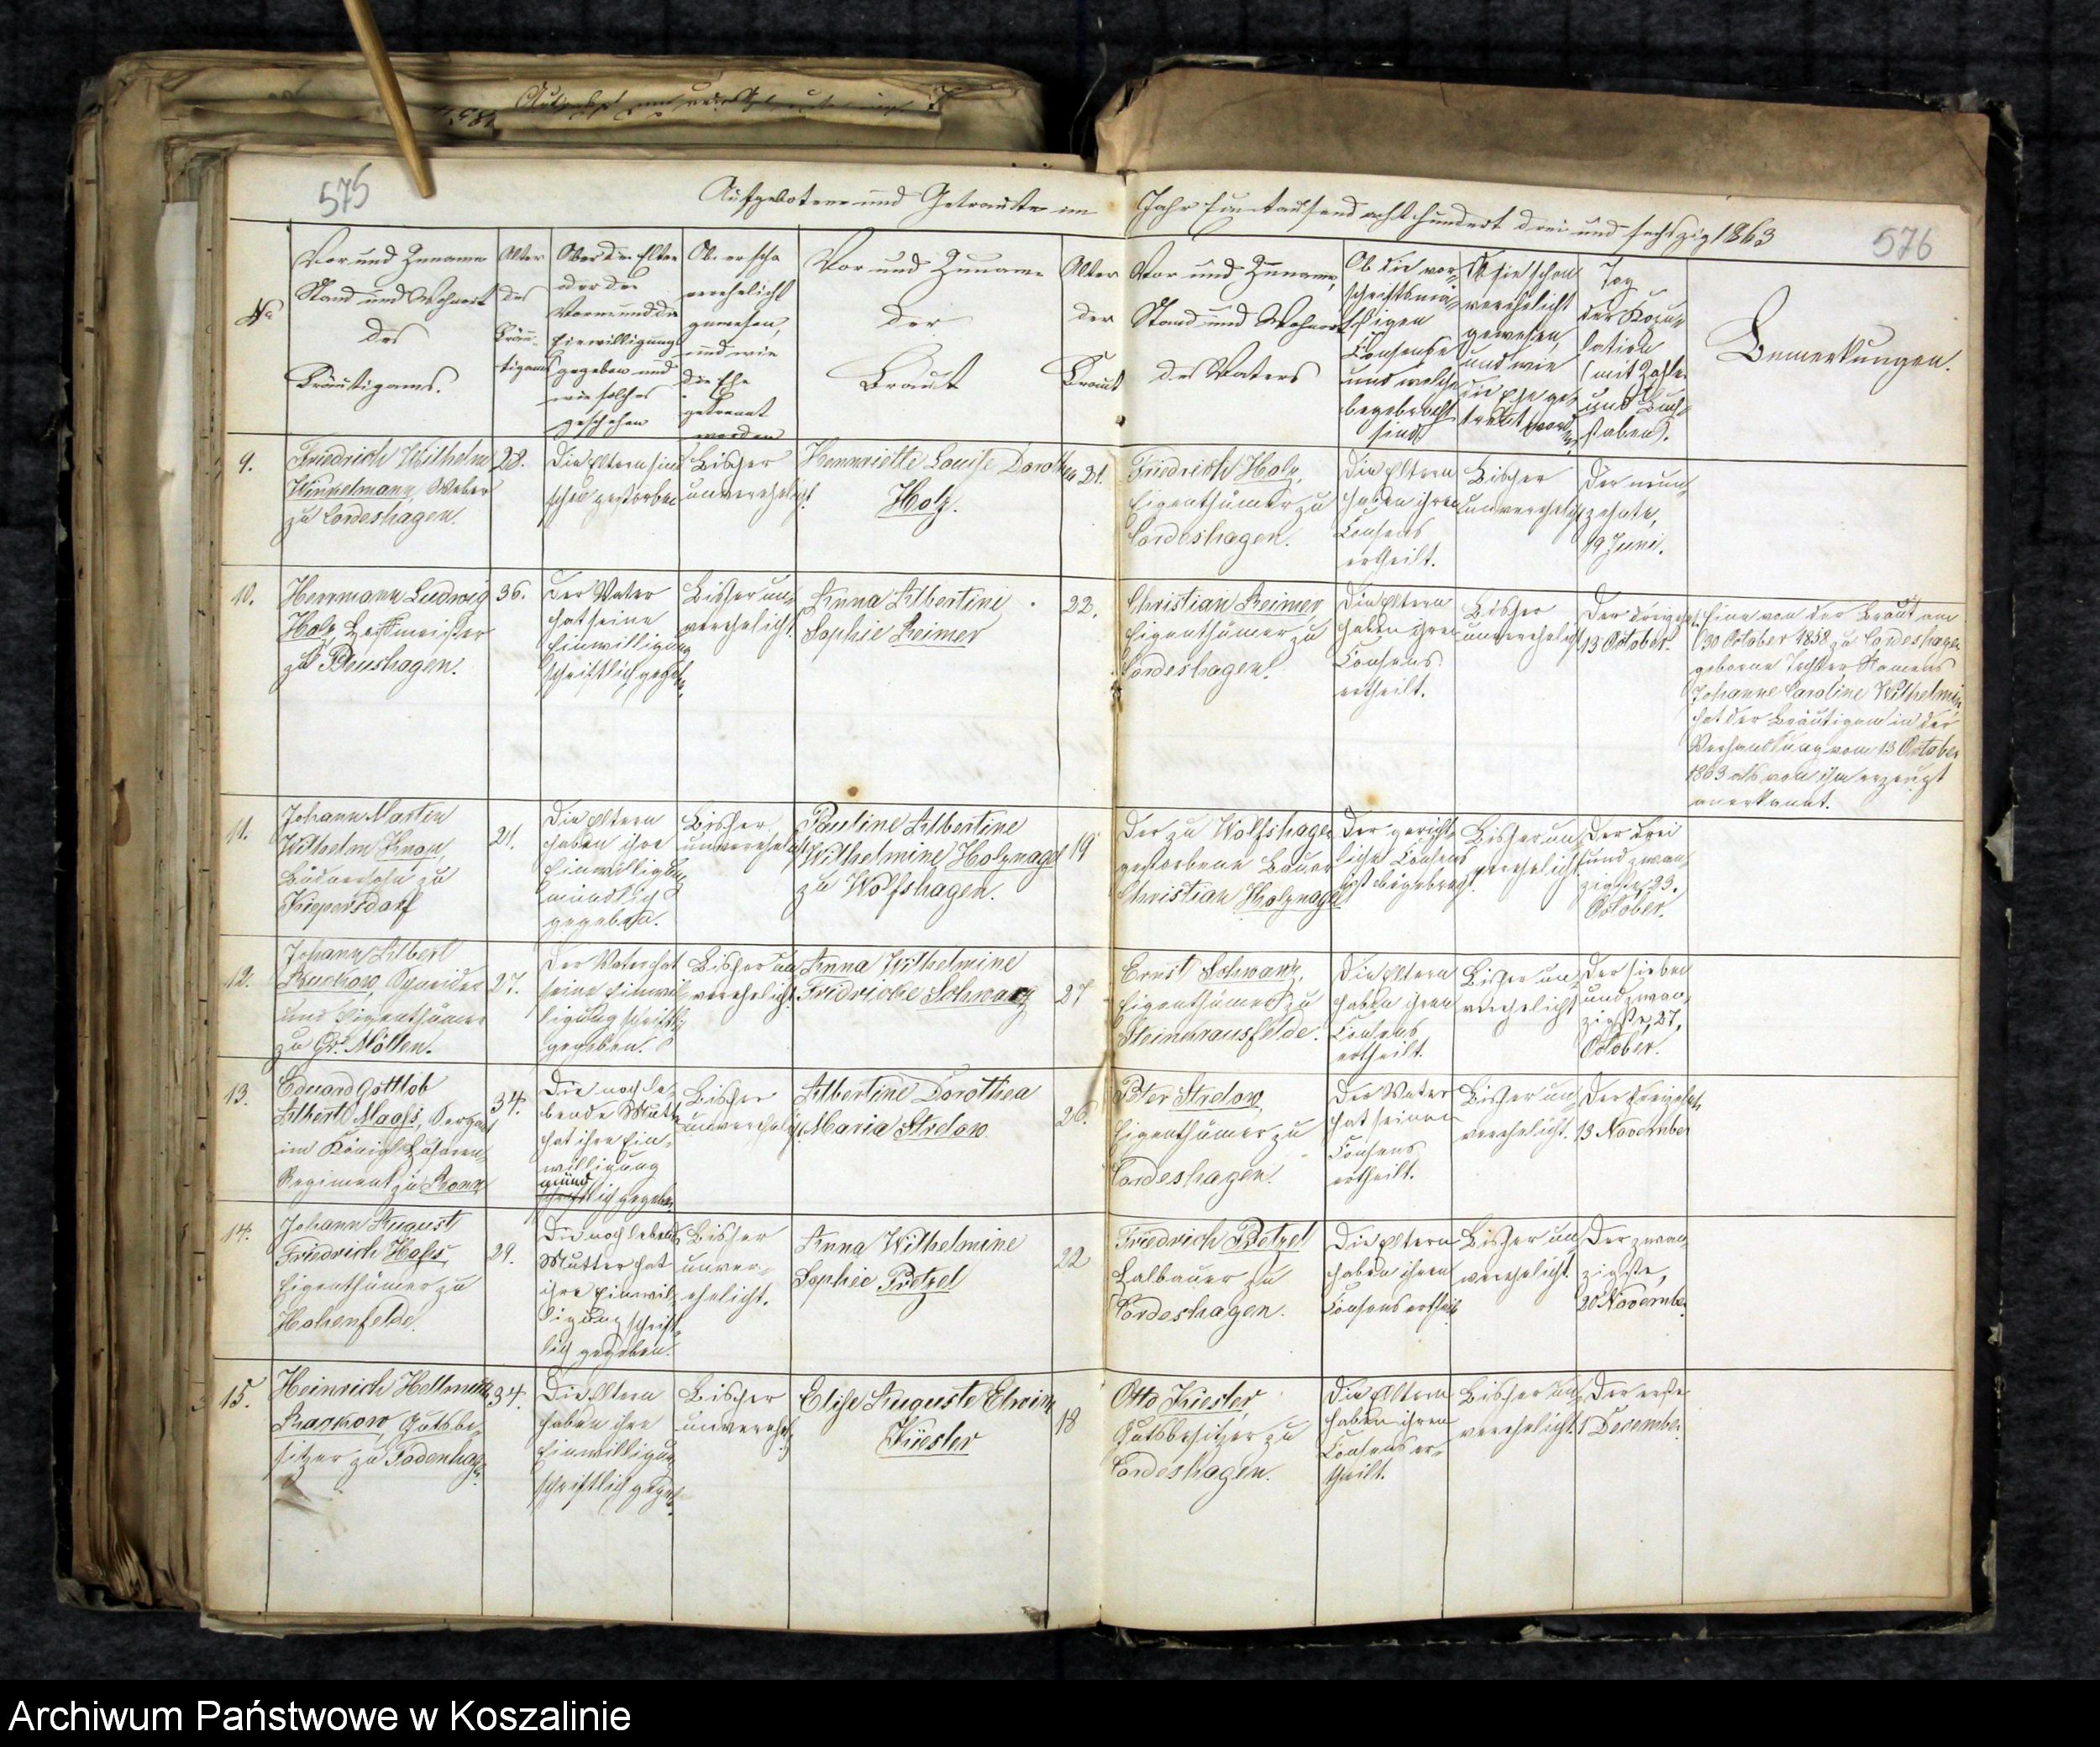 575
Aufgebotene und Getraute im Jahr Eintausend acht hundert drei und sechszig 1863
576
No
Vor und Zuname
Stand und Wohnort
des
Bräutigams.
Alter
des
Bräu-
tigams
Ob er die Eltern
oder den
Vormund die
Einwilligung
gegeben und
wie solches
geschehen
Ob er schon
verehelicht
gewesen,
und wie
die Ehe
getrennt
worden
Vor und Zuname
der
Braut
Alter
der
Braut
Vor und Zuname,
Stand und Wohnort
des Vaters
Ob die vor-
schriftsmä-
ßigen
Consense
und welche
beigebracht
sind.
Ob sie schon
verehelicht
gewesen,
und wie
die Ehe ge-
trennt worden
Tag
der Kopu-
lation
(mit Zahlen
und Buch-
staben).
Bemerkungen.
9.
Friedrich Wilhelm
Winkelmann, Weber
zu Cordeshagen.
28.
Die Eltern sind
schon gestorben
Bisher
unverehelicht.
Hennriette Louise Dorothea
Holz.
21.
Friedrich Holz,
Eigenthümer zu
Cordeshagen.
Die Eltern
haben ihren
Consens
ertheilt.
Bisher
unverehelicht
Der neun-
zehnte,
19 Juni.
10.
Herrmann Ludwig
Holz, Hofmeister
zu Plueshagen.
36.
Der Vater
hat seine
Einwilligung
schriftlich gegeben
Bisher un-
verehelicht.
Anna Albertine
Sophie Reimer
22.
Christian Reimer
Eigenthümer zu
Cordeshagen.
Die Eltern
haben ihren
Consens
ertheilt.
Bisher
unverehelicht
Der dreizehnte
13 October.
Eine von der Braut am
30 October 1858 zu Cordeshagen
geborene Tochter Namens
Johanne Caroline Wilhelmine
hat der Bräutigam in der
Verhandlung vom 13 October
1863 als von ihm erzeugt
anerkannt.
11.
Johann Martin
Wilhelm Knop,
Büdnersohn zu
Kiepersdorf
21.
Die Eltern
haben ihre
Einwilligung
mündlich
gegeben.
Bisher
unverehelicht
Pauline Albertine
Wilhelmine Holznagel
zu Wolfshagen.
19
Der zu Wolfshagen
gestorbene Bauer
Christian Holznagel
Der gericht-
liche Consens
ist beigebracht.
Bisher un-
verehelicht.
Der drei
und zwan-
zigste, 23.
October.
12.
Johann Albert
Ruckow, Schneider
und Eigenthümer
zu Gr. Möllen.
27.
Der Vater hat
seine Einwil-
ligung schriftlich
gegeben.
Bisher un-
verehelicht.
Anna Wilhelmine
Fridricke Schwarz
27
Ernst Schwarz,
Eigenthümer zu
Steinkrausfelde.
Die Eltern
haben ihren
Consens
ertheilt.
Bisher un-
verehelicht
Der sieben
und zwan-
zigste, 27,
October.
13.
Eduard Gottlob
Albert Maass, Sergant
im Königl Husaren-
Regiment zu Bonn
34.
Die noch le-
bende Mutter
hat ihre Ein-
willigung
münd
schriftlich gegeben.
Bisher
unverehelicht.
Albertine Dorothea
Maria Strelow.
26.
Peter Strelow,
Eigenthümer zu
Cordeshagen.
Der Vater
hat seinen
Consens
ertheilt.
Bisher un-
verehelicht.
Der dreizehnte
13 November
14.
Johann August
Friedrich Hass
Eigenthümer zu
Hohenfelde.
29.
Die noch lebende
Mutter hat
ihre Einwil-
ligung schrift-
lich gegeben.
Bisher
unver-
ehelicht.
Anna Wilhelmine
Sophie Petzel
22
Friedrich Petzel
Halbauer zu
Cordeshagen.
Die Eltern
haben ihren
Consens ertheilt
Bisher un-
verehelicht.
Der zwan-
zigste,
20 November
15.
Heinrich Hellmuth
Rackow, Gutsbe-
sitzer zu Todenhagen
34.
Die Eltern
haben ihre
Einwilligung
schriftlich gegeben
Bisher
unverehelicht
Elise Auguste Elwine
Küster
18
Otto Kuester,
Gutsbesitzer zu
Cordeshagen.
Die Eltern
haben ihren
Consens er-
theilt.
Bisher un-
verehelicht.
Der erste
1 December.
Archiwum Państwowe w Koszalinie